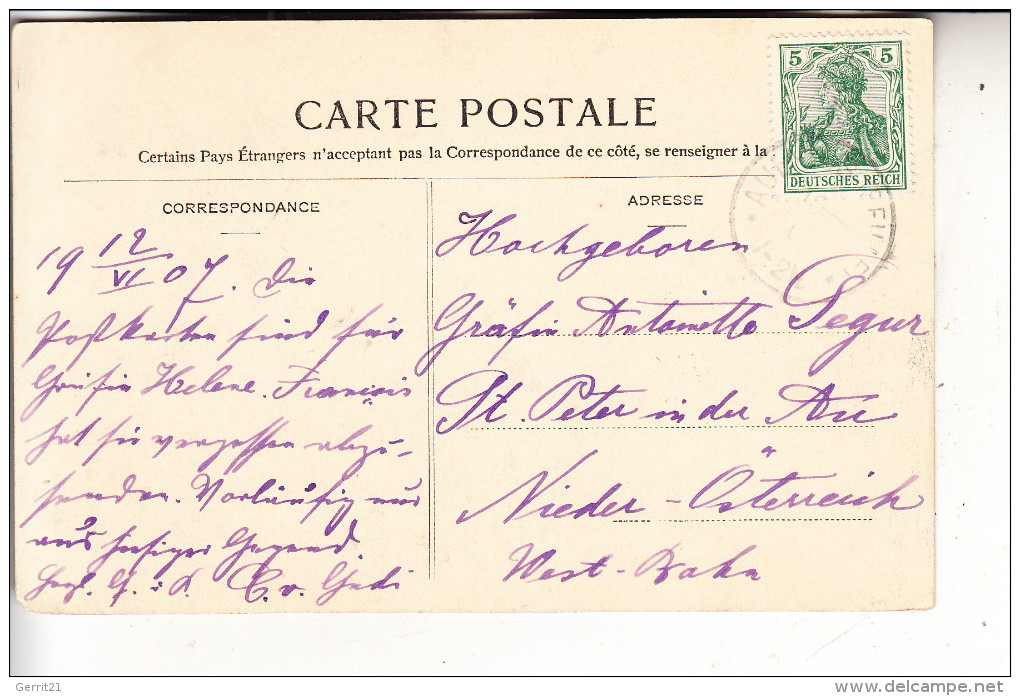 CARTE POSTALE
Certains Pays Étrangers n'acceptant pas la Correspondance de ce côté, se renseigner à la
5 5
DEUTSCHES REICH
CORRESPONDANCE
19 12/VI 07. Die
Postkarten sind für
Gräfin Helene. François
hat sie vergessen abzu-
senden. Vorläufig nur
aus hiesiger Gegend.
C. v.
ADRESSE
Hochgeboren
Gräfin Antoinette Segur
St. Peter in der Au
Nieder-Österreich
West-Bahn
Gerrit21
delcampe.net